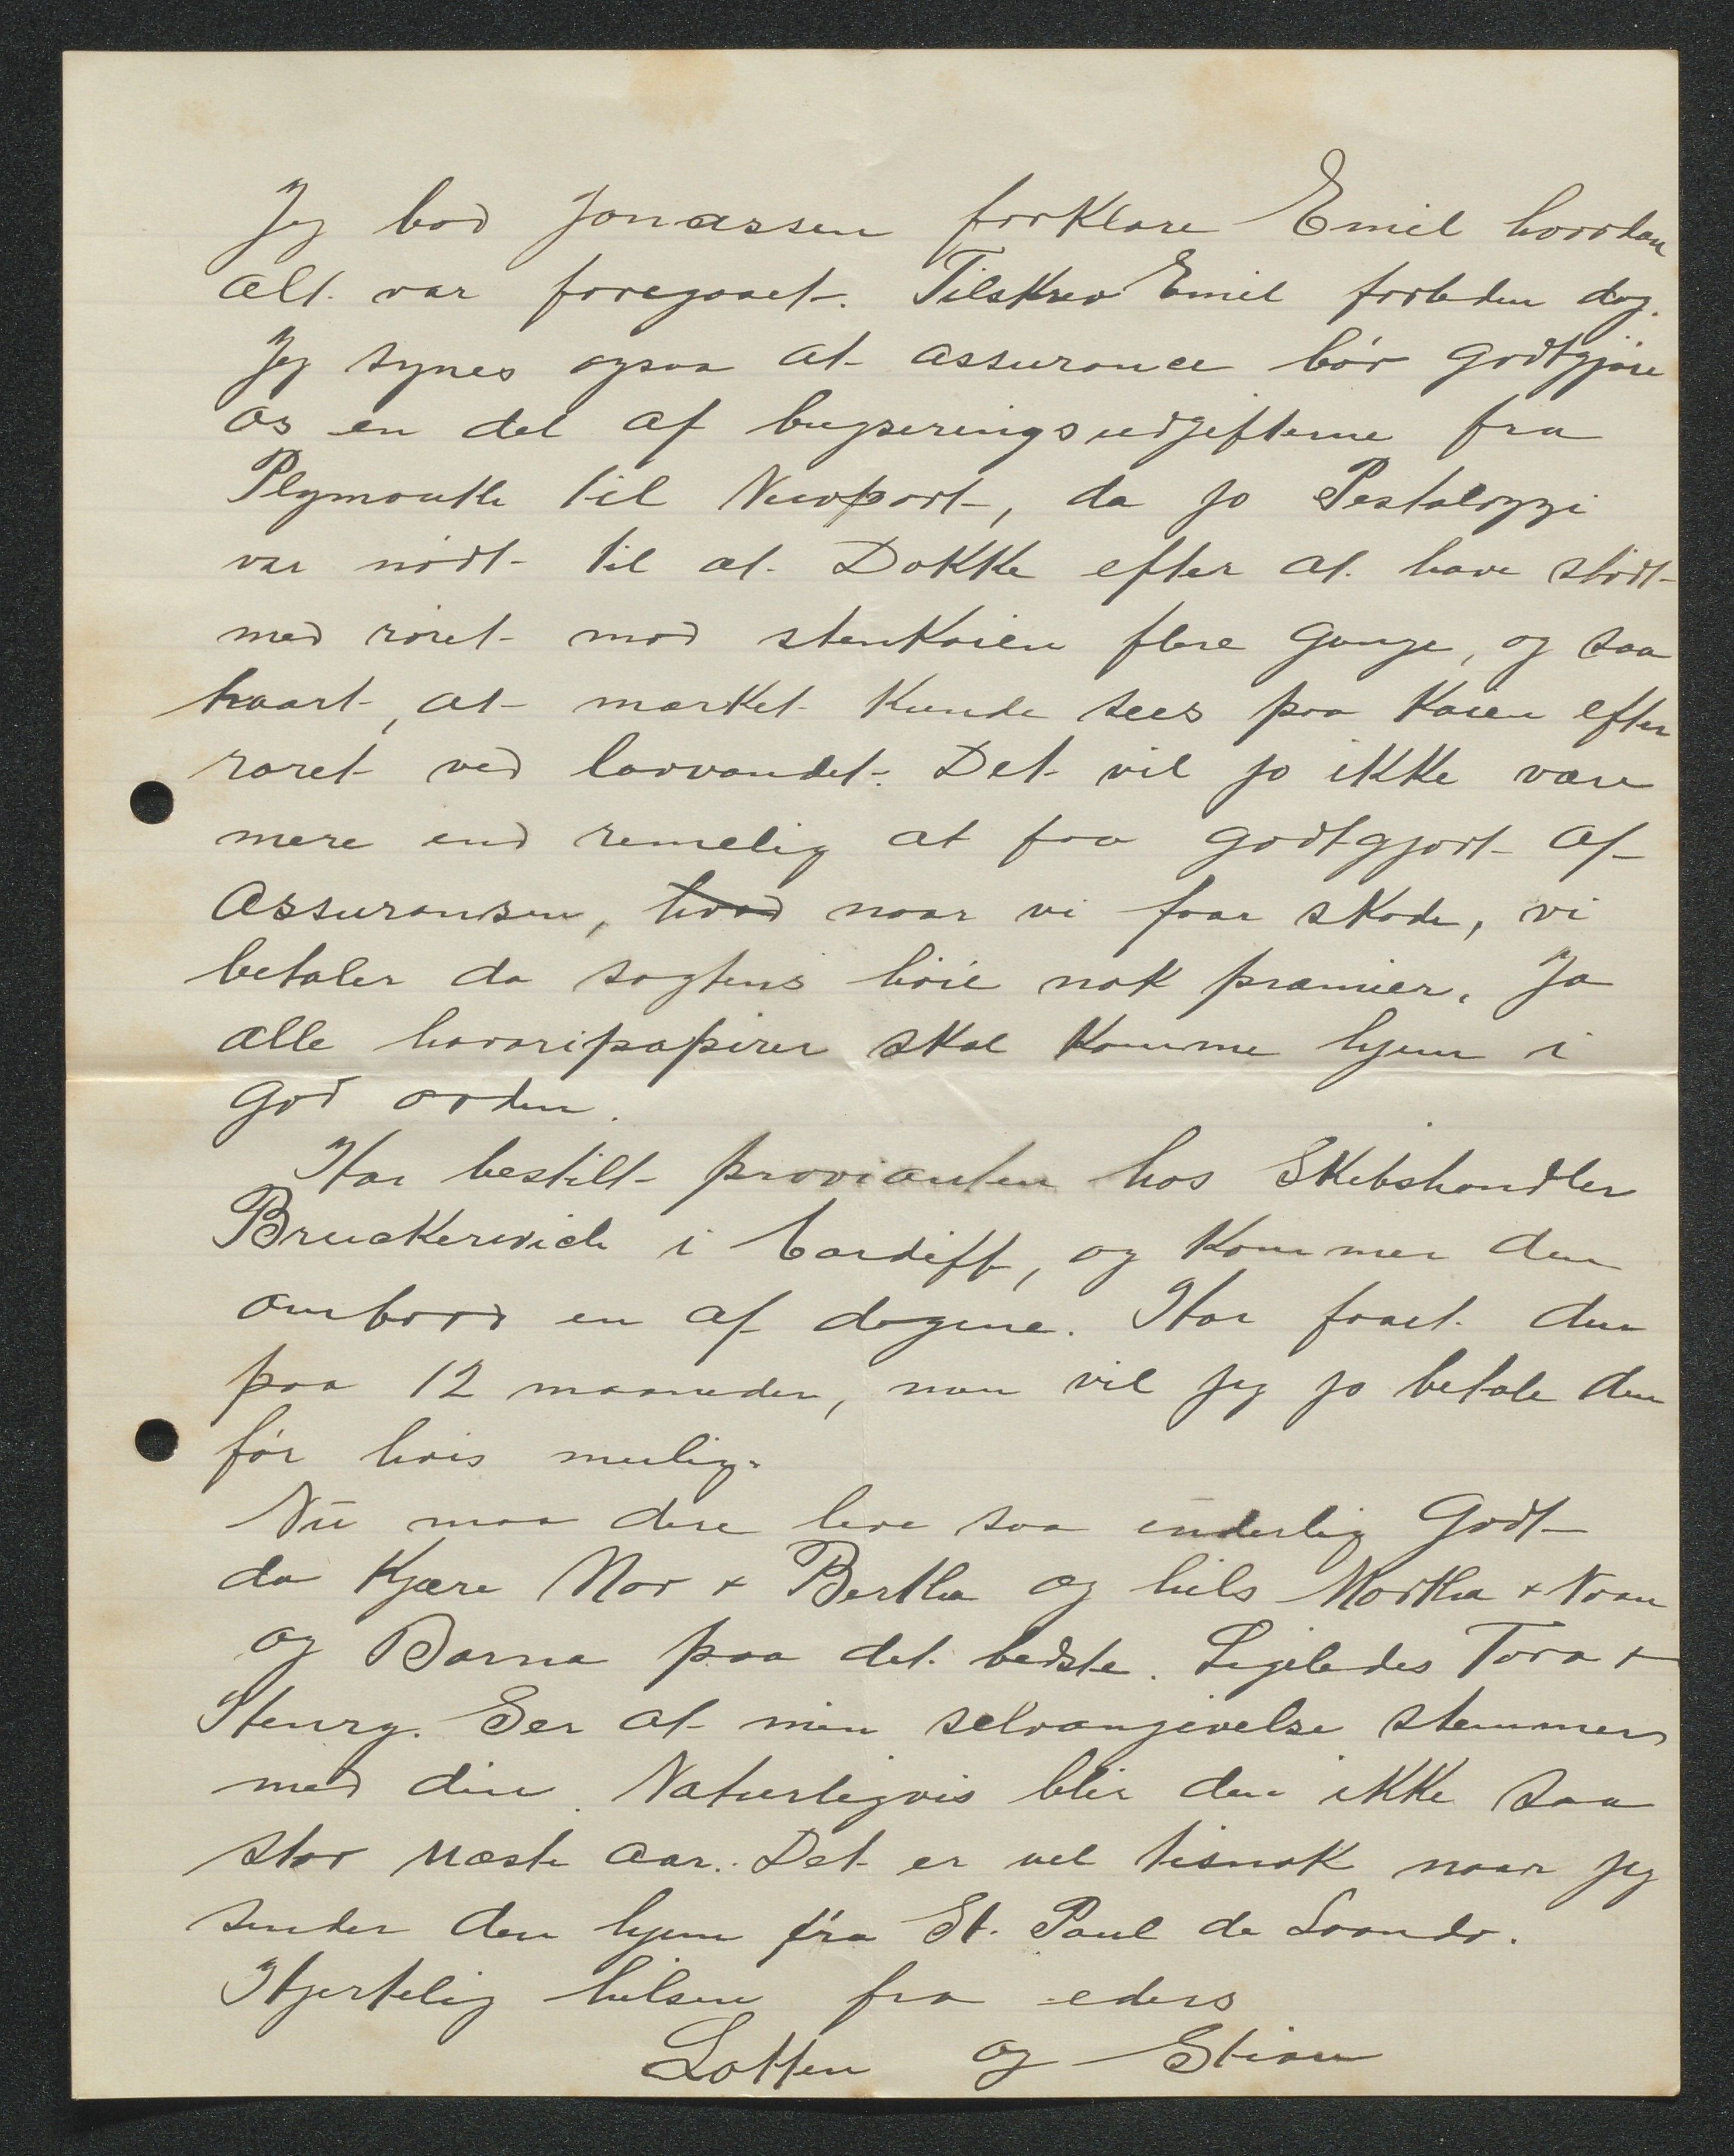 Jeg bad Jonassen forklare Emil hvordan
alt var foregaaet. Tilskrev Emil forleden dag.
Jeg synes ogsaa at assurance bór godtgjöre
os en del af bugseringsudgifterne fra
Plymouth til Newport, da jo Pestalozzi
var nódt til at Dokke efter at have stódt
med róret mod stenkaien flere gange, og saa
haart, at market kunde sees paa kaien efter
roret ved lavvandet. Det vil jo ikke være
mere end remelig at faa godtgjort af
Assuransen, hvad naar vi faar skade, vi
betaler da sagtens hóie nok præmier. Ja
alle havaripapirer skal komme hjem i
god orden.
Har bestilt provianten hos Skibshandler
Bruckerwich i Cardiff, og kommer den
ombord en af dagene. Har faaet den
paa 12 maaneder, men vil jeg jo betale den
fór hvis mulig.
Nu maa dere leve saa inderlig Godt
da Kjære Mor & Bertha og hils Martha &
og Barna paa det bedste. Ligeledes Tora &
Henry. Ser at min selvangivelse stemmer
med din. Naturligvis blir den ikke saa
stor næste aar. Det er vel tisnok naar jeg
sender den hjem fra St. Paul de Loando.
Hjertelig hilsen fra eders
Lotten og Stian